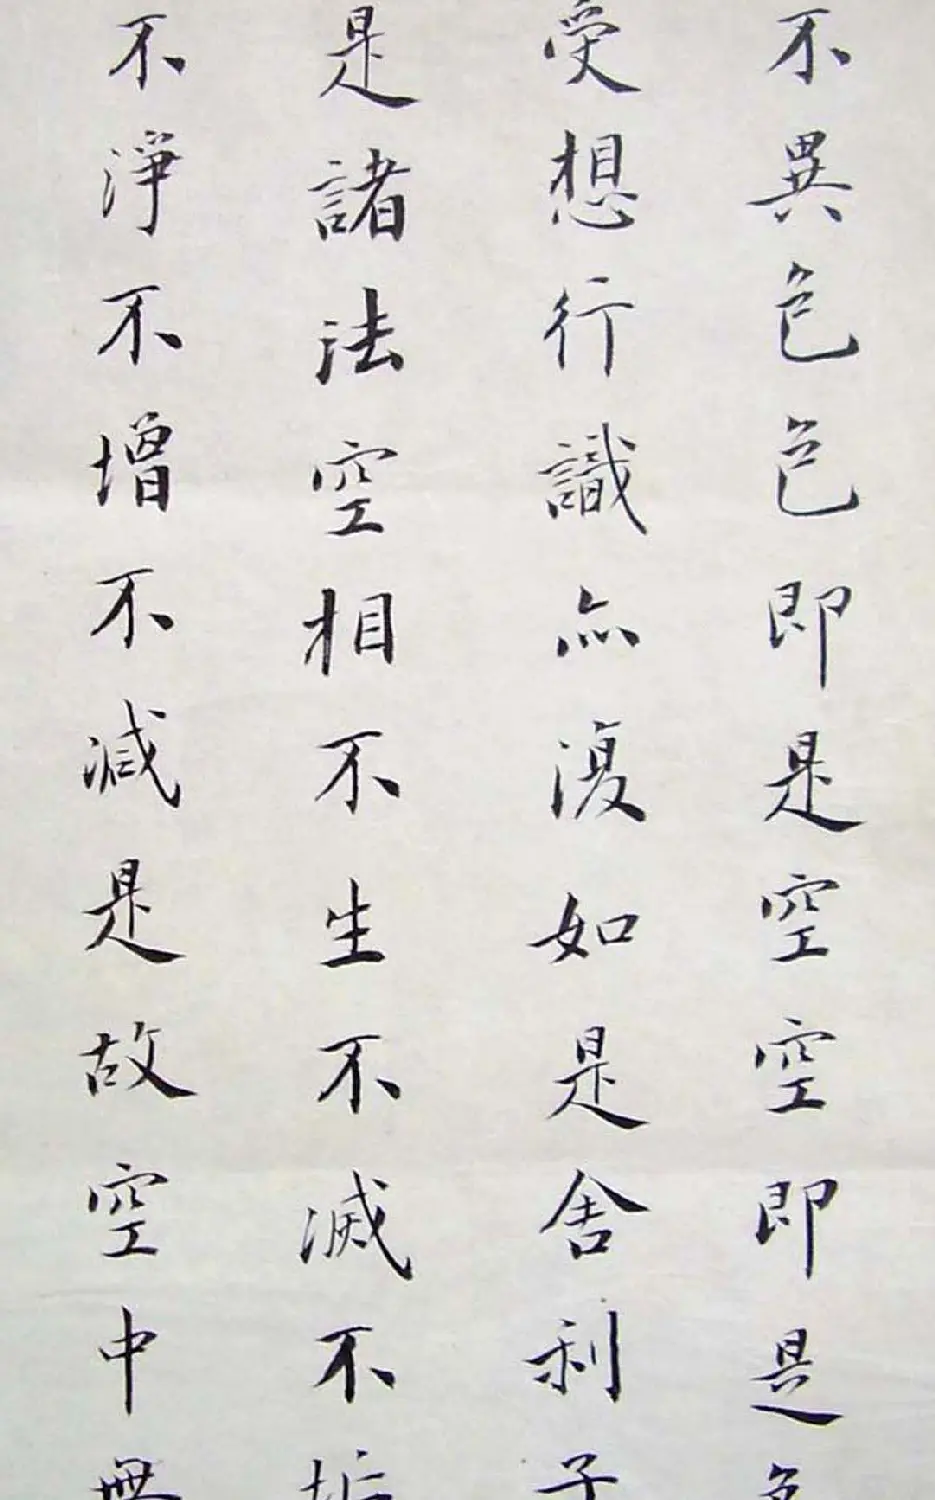 不異色色即是空空即是色
受想行識亦復如是舍利子
是諸法空相不生不滅不垢
不淨不增不減是故空中無